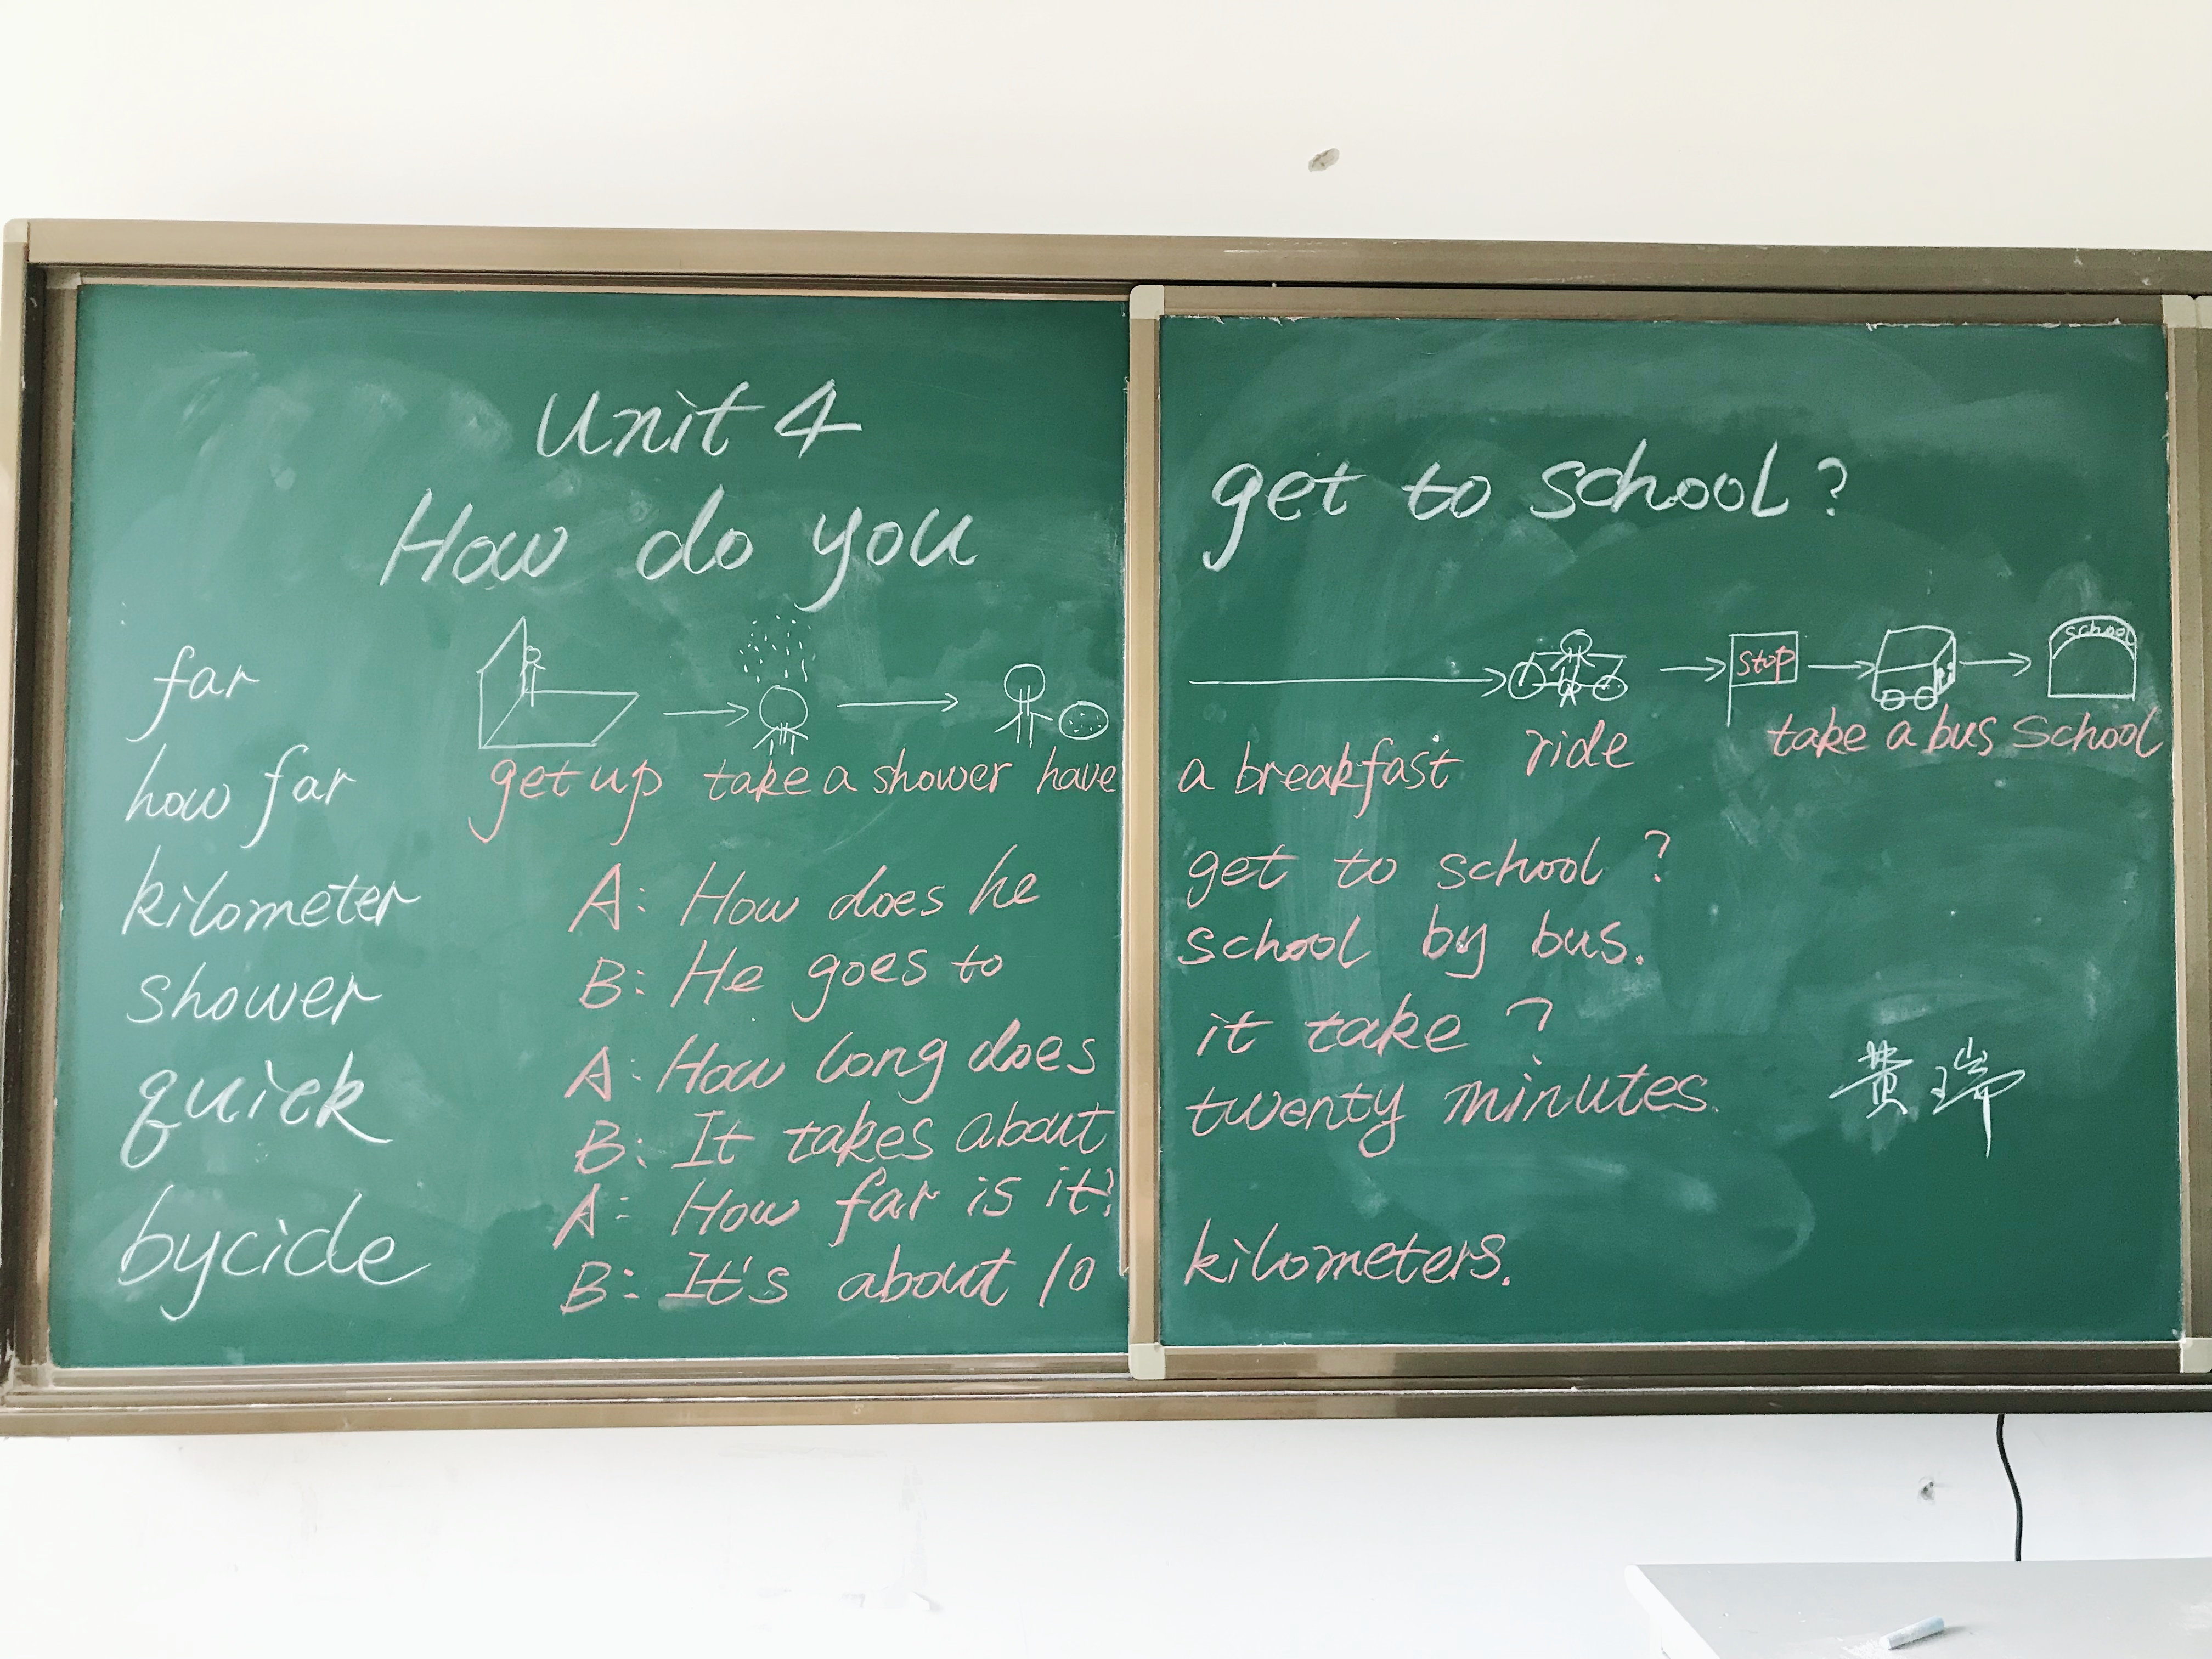 Unit 4
How do you get to school?
school
stop
far
how far
kilometer
shower
quick
bycicle
get up take a shower have a breakfast ride take a bus school
A: How does he get to school?
B: He goes to school by bus.
A: How long does it take?
B: It takes about twenty minutes.
A: How far is it?
B: It's about 10 kilometers.
黄瑞